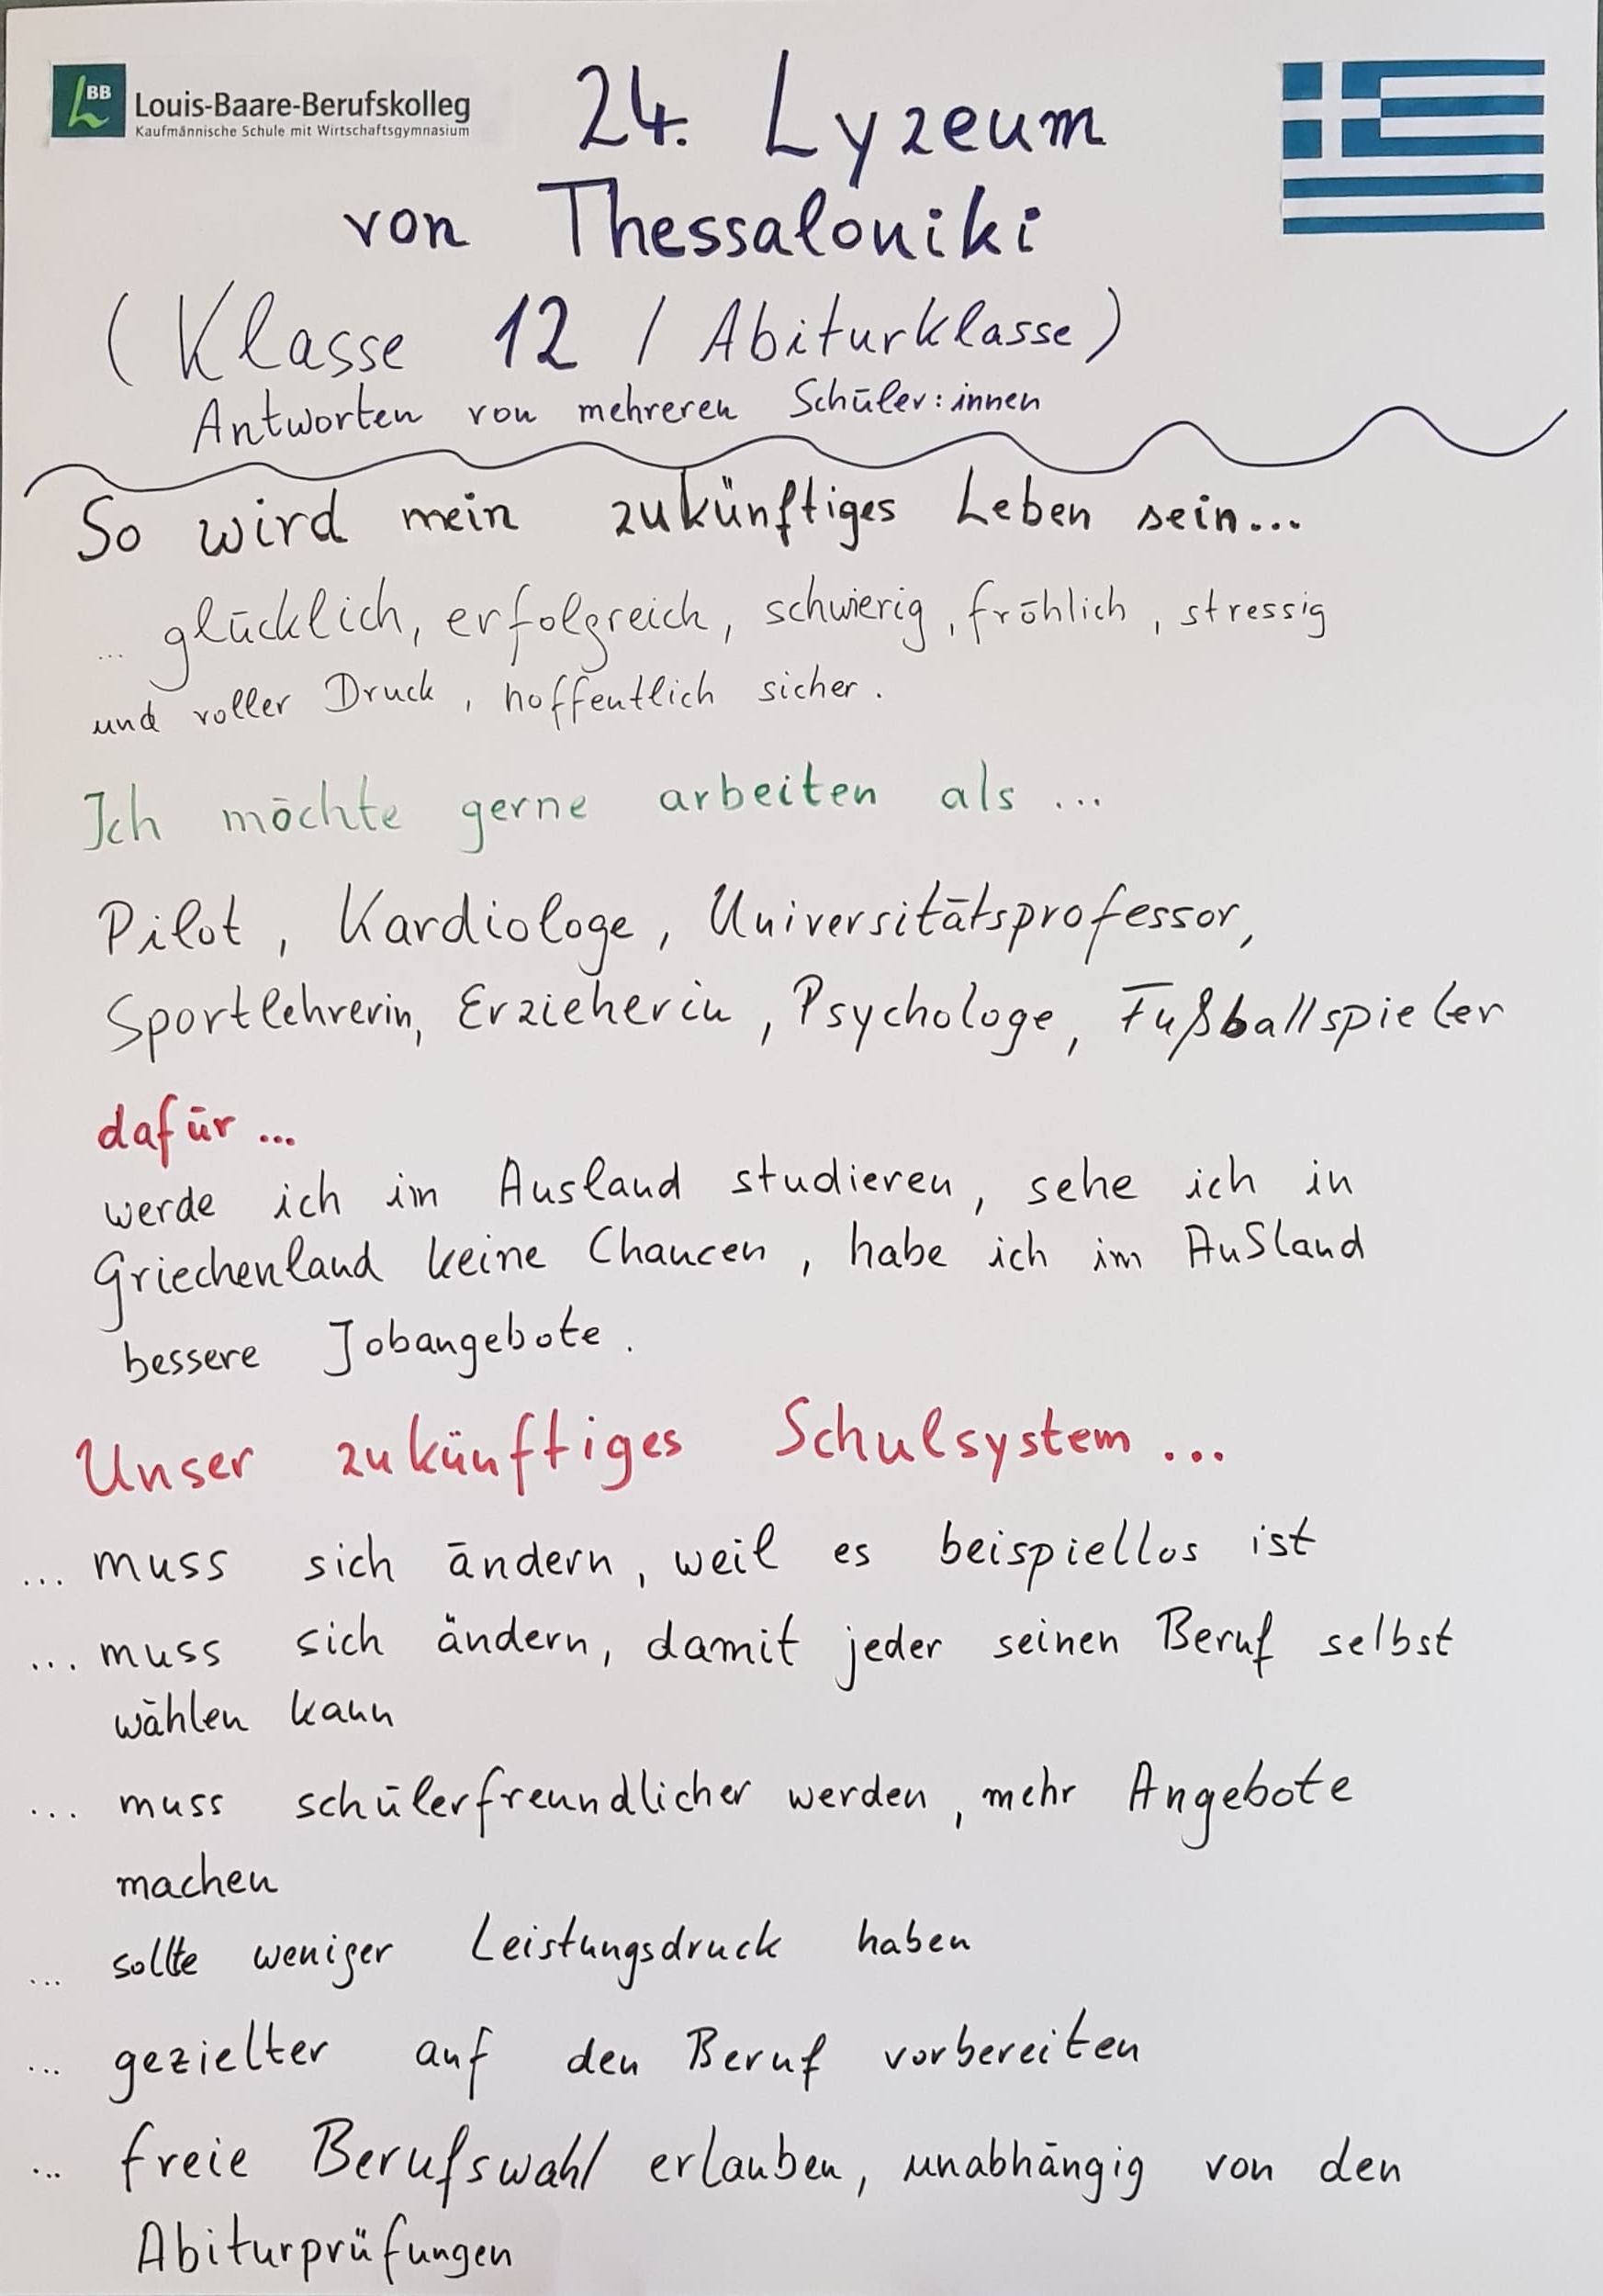 LBB
Louis-Baare-Berufskolleg
Kaufmännische Schule mit Wirtschaftsgymnasium
24. Lyzeum
von Thessaloniki
(Klasse 12 / Abiturklasse)
Antworten von mehreren Schüler:innen
So wird mein zukünftiges Leben sein...
... glücklich, erfolgreich, schwierig, fröhlich, stressig
und voller Druck, hoffentlich sicher.
Ich möchte gerne arbeiten als ...
Pilot, Kardiologe, Universitätsprofessor,
Sportlehrerin, Erzieherin, Psychologe, Fußballspieler
dafür ...
werde ich im Ausland studieren, sehe ich in
Griechenland keine Chancen, habe ich im AuSland
bessere Jobangebote.
Unser zukünftiges Schulsystem ...
... muss sich ändern, weil es beispiellos ist
... muss sich ändern, damit jeder seinen Beruf selbst
wählen kann
... muss schülerfreundlicher werden, mehr Angebote
machen
... sollte weniger Leistungsdruck haben
... gezielter auf den Beruf vorbereiten
... freie Berufswahl erlauben, unabhängig von den
Abiturprüfungen